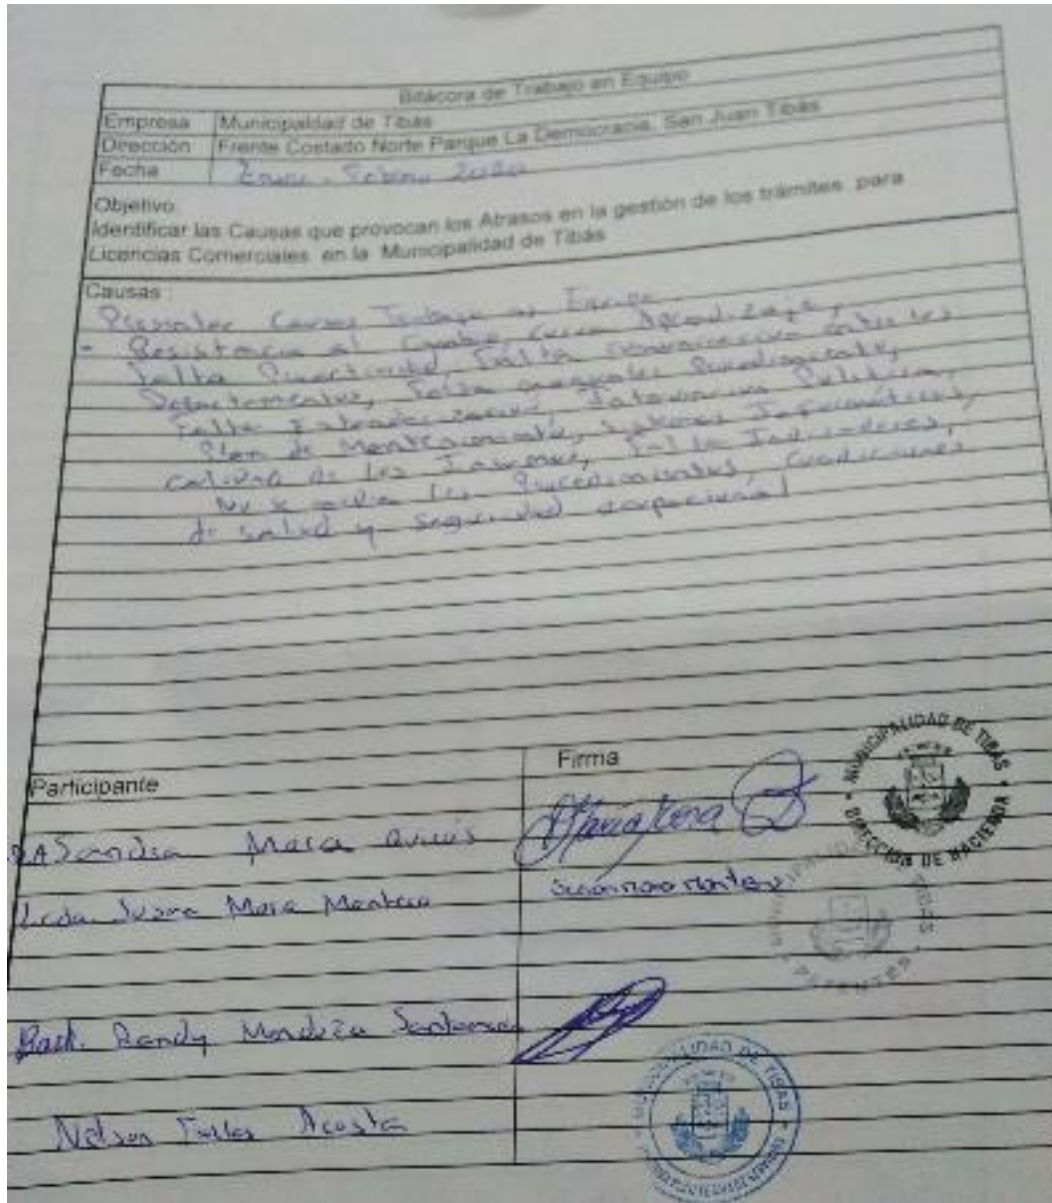 Bitácora de Trabajo en Equipo
Empresa Municipalidad de Tibás
Dirección Frente Costado Norte Parque La Democracia, San Juan Tibás
Fecha Enero - Febrero 2020
Objetivo:
Identificar las Causas que provocan los Atrasos en la gestión de los trámites para
Licencias Comerciales en la Municipalidad de Tibás
Causas :
Causas Trabajo en Equipo
- Resistencia al Cambio, Curva Aprendizaje,
Falta Proactividad, Falta comunicación entre los
Departamentos, Falta Procedimiento,
Falta Estandarización, Política,
Plan de Mantenimiento, Sistemas Informáticos,
calidad de los Insumos, Falta Indicadores,
No se los Procedimientos, Condiciones
de salud y seguridad ocupacional
Participante Firma
Sandra Mara
Licda. Mora Montero
Bach. Randy Mendoza Santamaria
Nelson Fallas Acosta
MUNICIPALIDAD DE TIBAS
DIRECCION DE HACIENDA
MUNICIPALIDAD DE TIBAS
PATENTES
MUNICIPALIDAD DE TIBAS